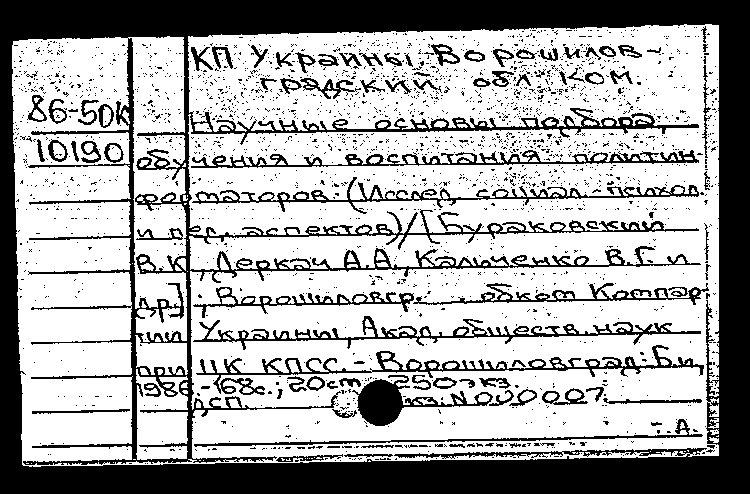 КП Украины. Ворошилов-
градский обл. ком.
86-50к
Научные основы подбора,
10190
обучения и воспитания политин-
форматоров: (Исслед. социал.-психол.
и пед. аспектов)/[Бураковский
В.К., Деркач А.А., Кальченко В.Г. и
др.]; Ворошиловгр. обком Компар-
тии Украины, Акад. обществ. наук
при ЦК КПСС. - Ворошиловград: Б.и,
1986.-168с.; 20см. 250экз.
ДСП. экз. N000007.
Т.А.